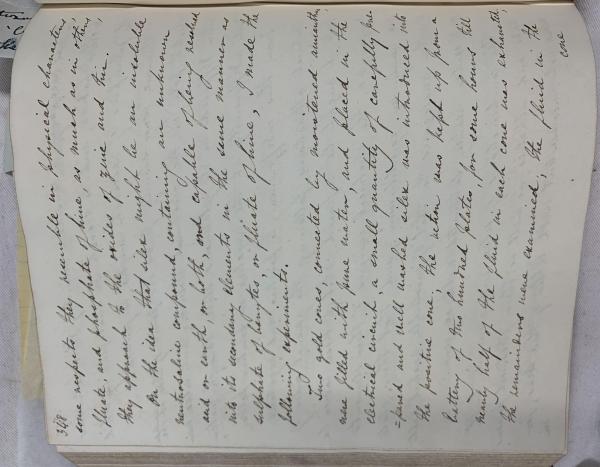 348
some respects they resemble in physical characters
fluate, and phosphate of lime, as much as in others,
they approach to the oxides of zinc and tin.
On the idea that silex might be an insoluble
neutrosaline compound, containing an unknown
acid or earth, or both, and capable of being resolved
into its secondary elements in the same manner as
sulphate of barytes, or fluate of lime, I made the
following experiments.
Two gold cones, connected by moistened amianthus,
were filled with pure water, and placed in the
electrical circuit, a small quantity of carefully pre-
=pared and well washed silex was introduced into
the positive cone, the action was kept up from a
battery of two hundred plates, for some hours till
nearly half of the fluid in each cone was exhausted,
the remainders were examined; the fluid in the
one